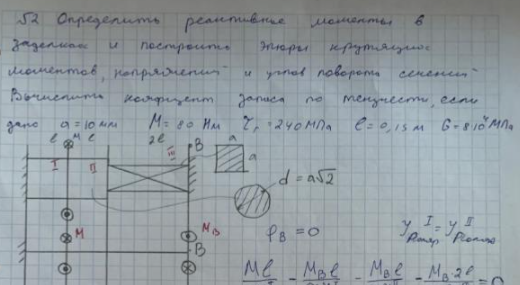 √2 Определить реактивные моменты в
заделках и построить эпюры крутящих
моментов, напряжений и углов поворота сечений
Вычислить коэфицент запаса по текучести, если
дано a=10мм M=80 Нм τт=240МПа l=0,15м G=8·10⁴МПа
l M l 2l III B a
I II a
d=a√2
M M_B φ_B=0 y_p^I = y_p^II
B
Ml - M_B l - M_B l - M_B·2l = 0